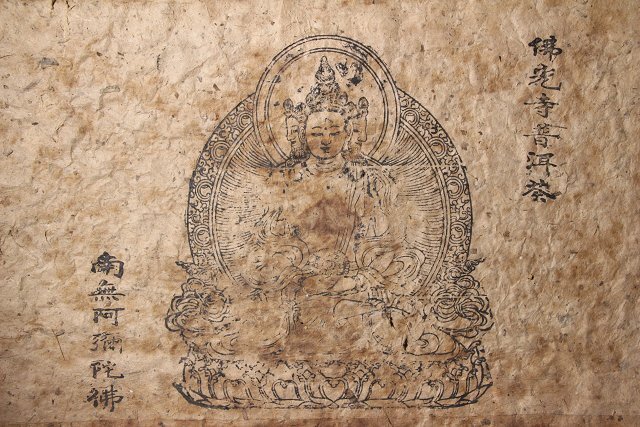 佛寺普洱茶
南無阿彌陀佛